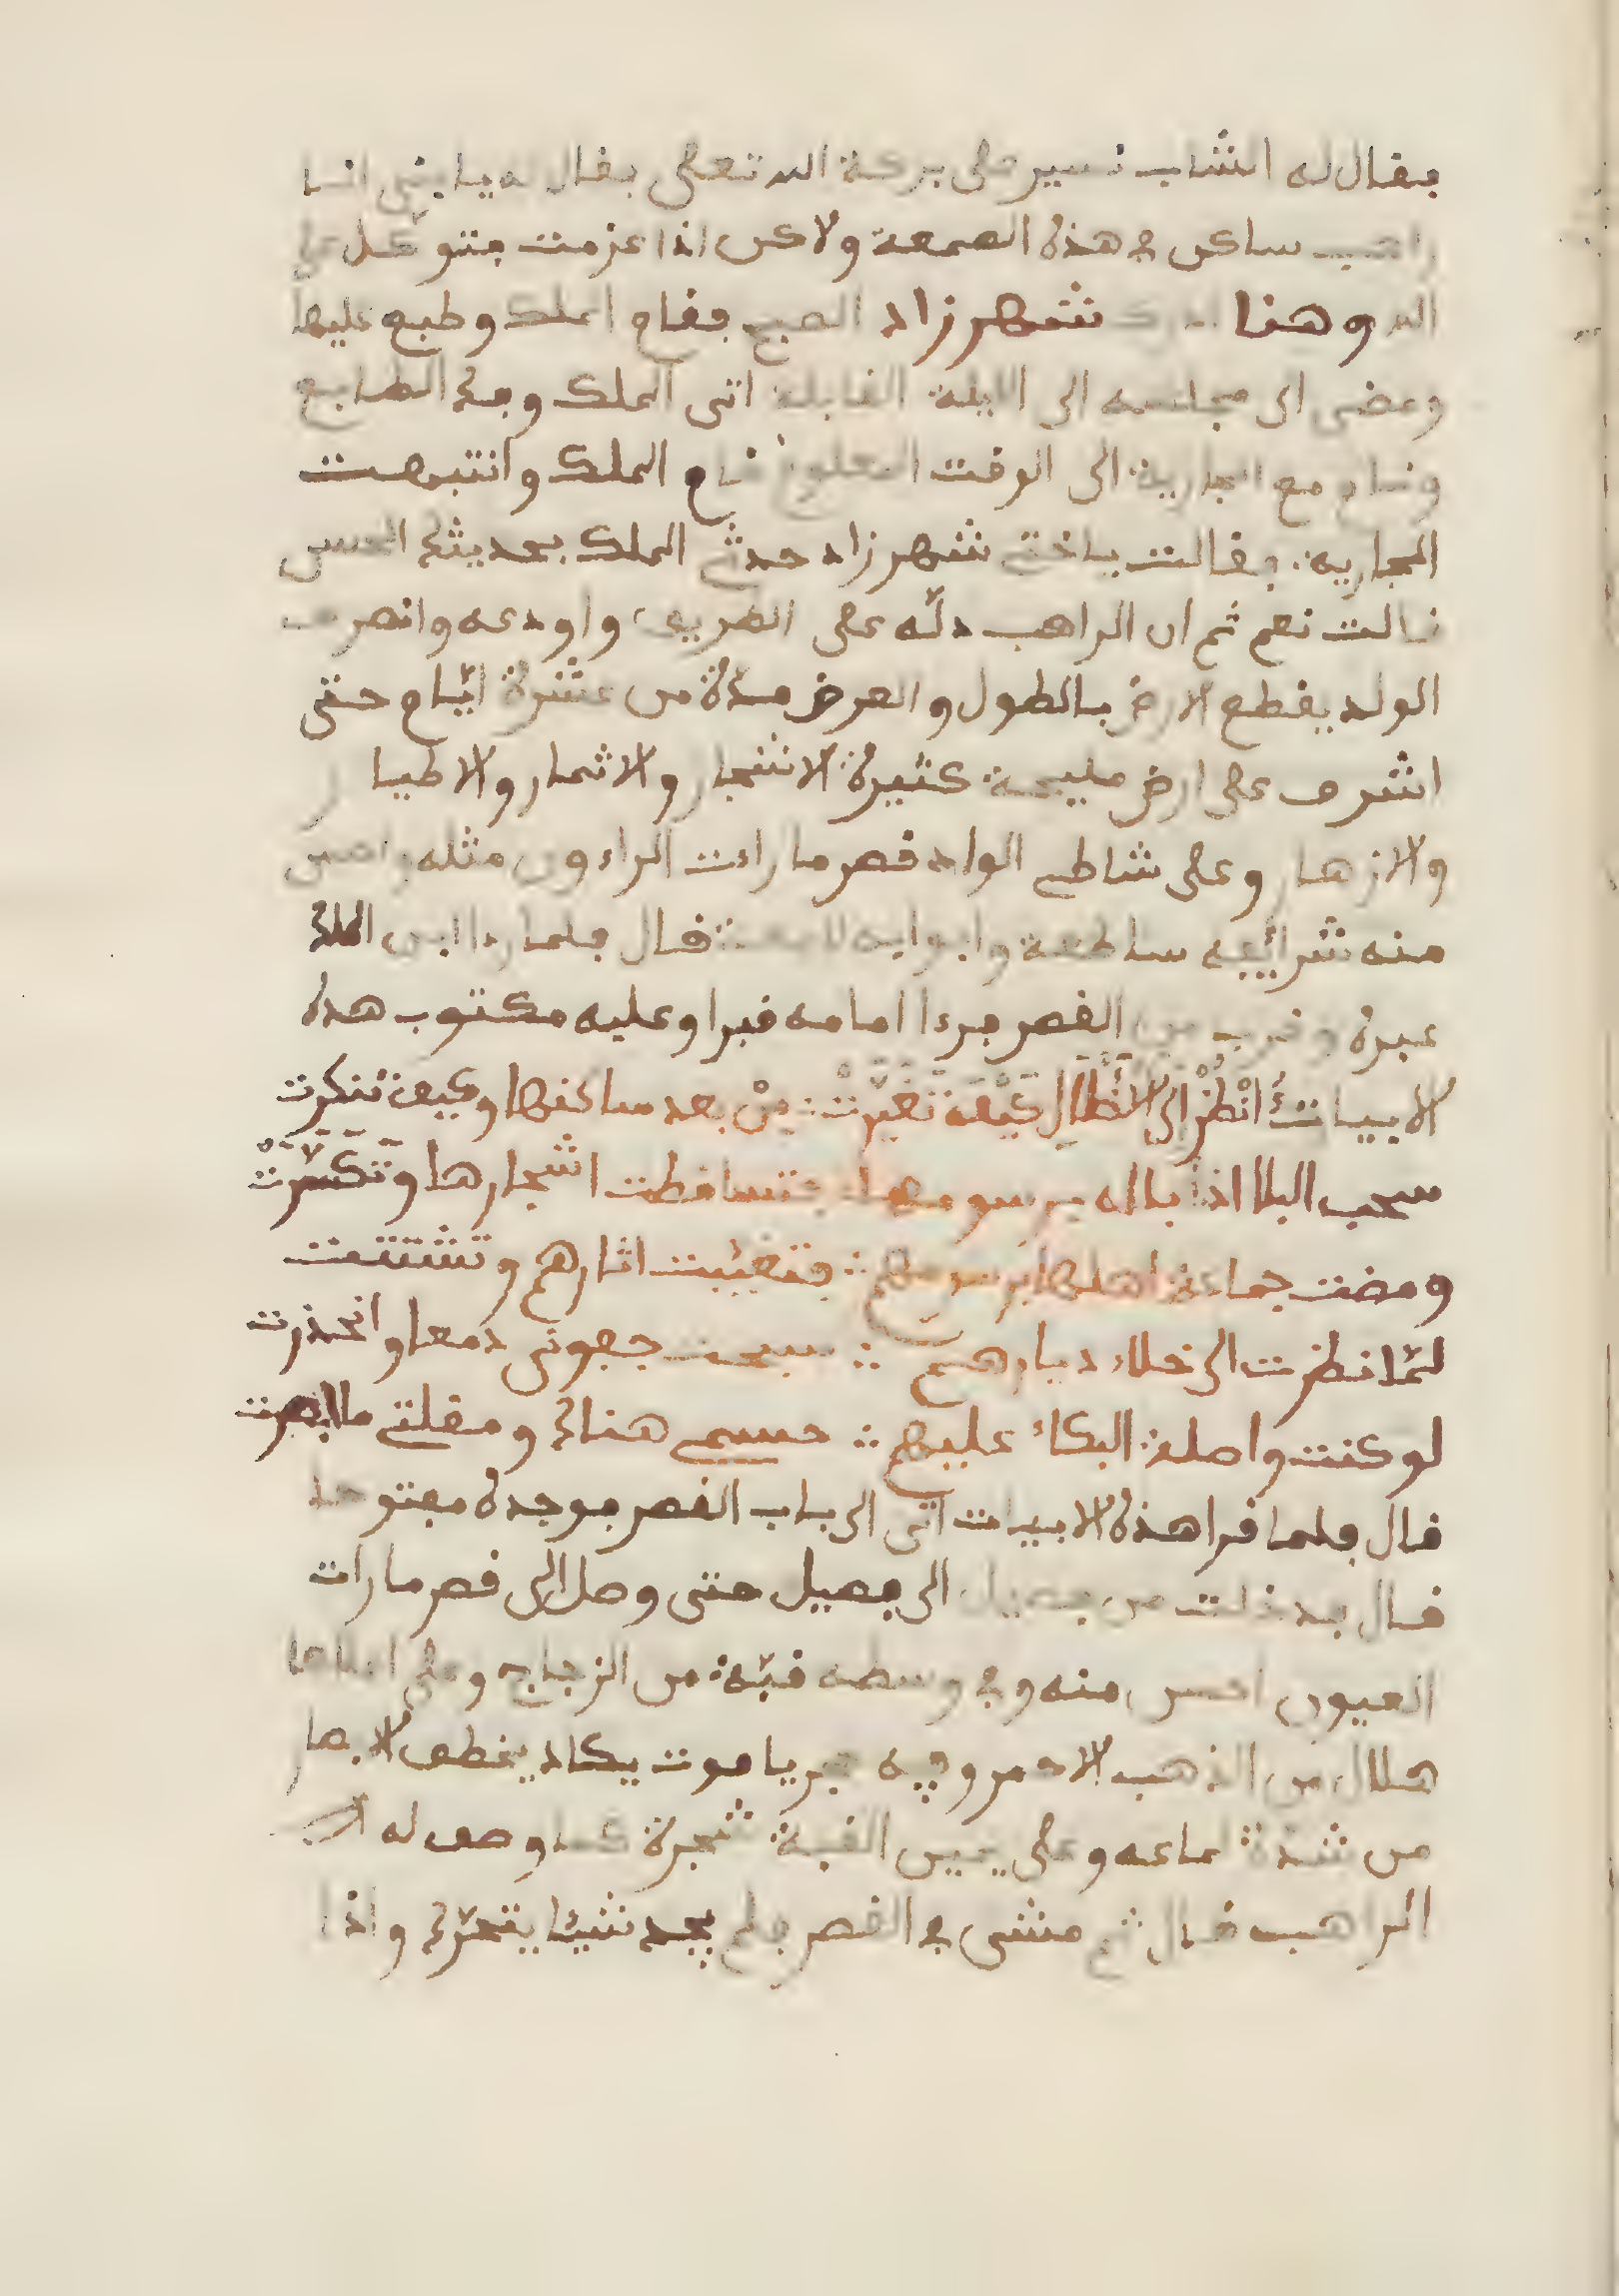 فقال له الشاب نسير على بركة الله تعلى فقال له يا بنى انا
راهب ساكن في هذه الصمعة ولاكن اذا عزمت فتوكل على
الله وهنا ادرك شهرزاد الصبح فقام الملك وطبع عليها
ومضى الى مجلسه الى الليلة القابلة اتى الملك وفك الطابع
ونام مع الجارية الى الوقت المعلوم قام الملك وانتبهت
الجارية فقالت ياختي شهرزاد حدثي الملك بحديثك الحسن
قالت نعم ثم ان الراهب دلّه على الطريق واودعه وانصرف
الولد يقطع الارض بالطول والعرض مدّة من عشرة ايّام حتى
اشرف على ارض مليحة كثيرة الاشجار والاثمار والاطيار
والازهار وعلى شاطي الواد قصر ما راءت الراءون مثله واحسن
منه شرائفه ساطعة وابوابه لامعة قال فلما رءا ابن الملك
عبره وقرب من القصر فرءا امامه قبرا وعليه مكتوب هذه
الابيات انْظُرْ الى الاطْلَالِ كَيْفَ تَغَيَّرَتْ مِنْ بعد ساكنها وكيف تنكرت
سحب البلا اذيالهُ برسومها فتساقطت اشجارها وَتَكَسَّرَتْ
ومضت جماعة اهلها برسومهم فتغيّبت اثارهم وتشتتت
لمّا نظرت الى خلاء ديارهم سمحت جفونى دمعا وانحذرت
لو كنت واصلة البكاء عليهم حسبي هناك ومقلتي ما ابصرت
قال فلما قرا هذه الابيات اتى الى باب القصر فوجده مفتوحا
قال فدخلت من فصيل الى فصيل حتى وصل الى قصر ما رات
العيون احسن منه وفي وسطه قبّة من الزجاج وعلى اعلاها
هلال من الذهب الاحمر وفيه حجر ياقوت يكاد يخطف الابصار
من شدّة لماعه وعلى يمين القبة شجرة كما وصف له
الراهب قال ثم مشى في القصر فلم يجد شيئا يتحرّك واذا